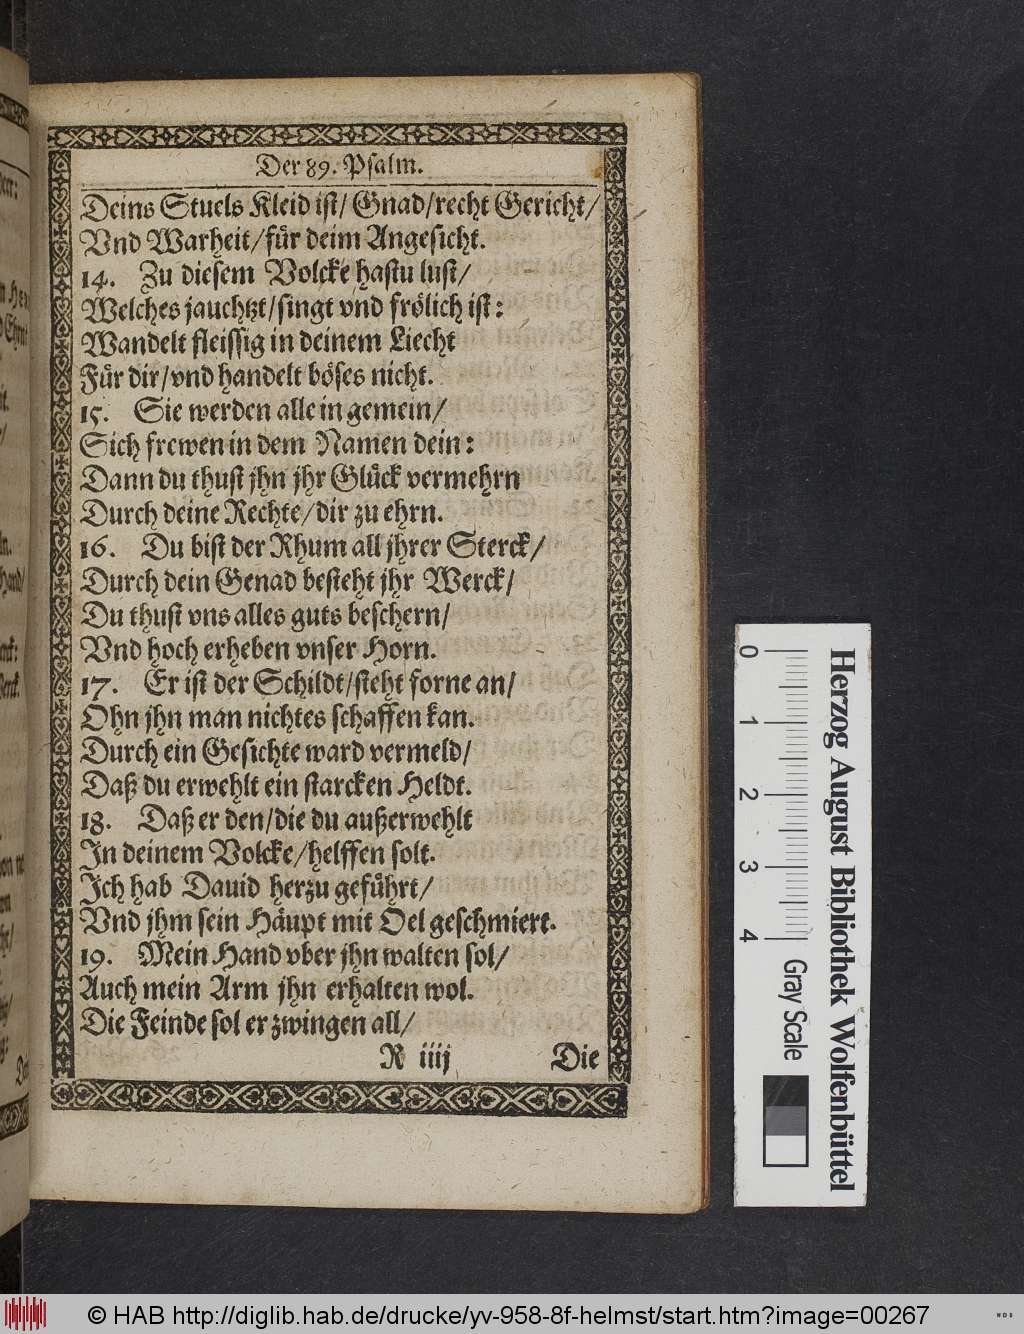 Der 89. Psalm.
Deins Stuels Kleid ist/ Gnad/recht Gericht/
Vnd Warheit/für deim Angesicht.
14. Zu diesem Volcke hastu lust/
Welches jauchtzt/singt vnd frölich ist:
Wandelt fleissig in deinem Liecht
Für dir/vnd handelt böses nicht.
15. Sie werden alle in gemein/
Sich frewen in dem Namen dein:
Dann du thust jhn jhr Glück vermehrn
Durch deine Rechte/dir zu ehrn.
16. Du bist der Rhum all jhrer Sterck/
Durch dein Genad besteht jhr Werck/
Du thust vns alles guts beschern/
Vnd hoch erheben vnser Horn.
17. Er ist der Schildt/steht forne an/
Ohn jhn man nichtes schaffen kan.
Durch ein Gesichte ward vermeld/
Daß du erwehlt ein starcken Heldt.
18. Daß er den/die du außerwehlt
In deinem Volcke/helffen solt.
Ich hab Dauid herzu geführt/
Vnd jhm sein Häupt mit Oel geschmiert.
19. Mein Hand vber jhn walten sol/
Auch mein Arm jhn erhalten wol.
Die Feinde sol er zwingen all/
R iiij Die
0 1 2 3 4
Gray Scale
Herzog August Bibliothek Wolfenbüttel
© HAB http://diglib.hab.de/drucke/yv-958-8f-helmst/start.htm?image=00267